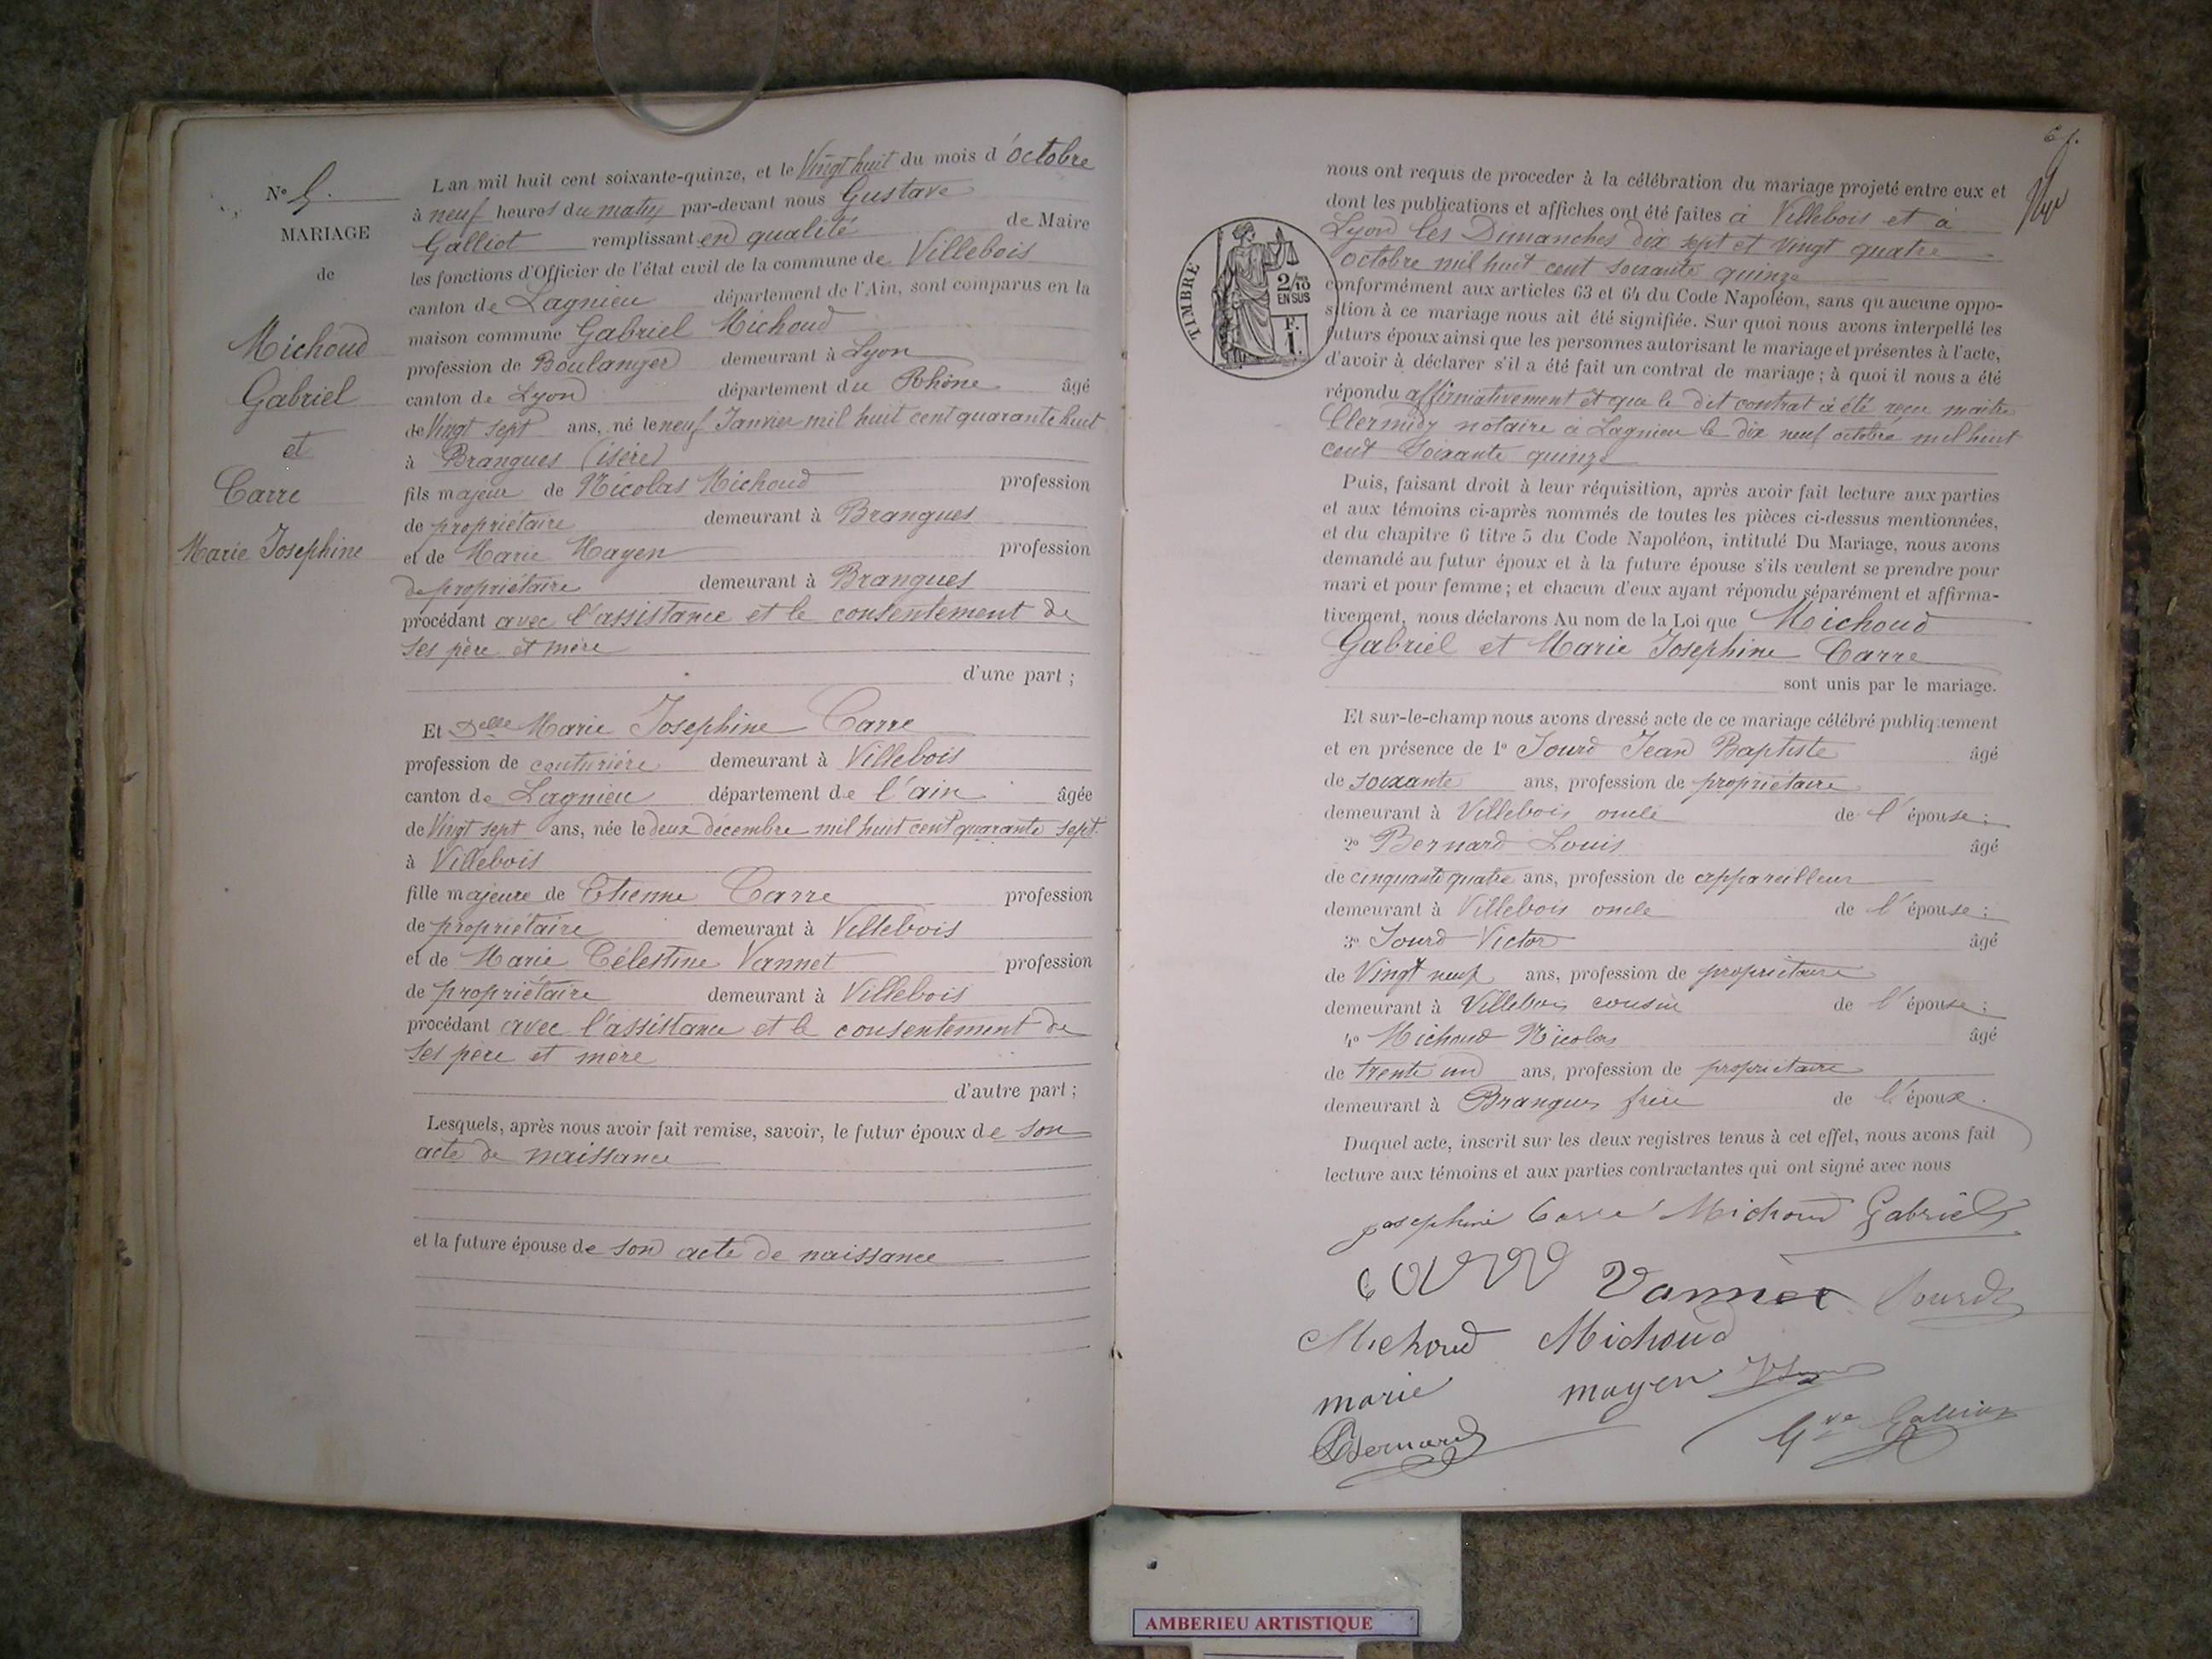 N° 5.
MARIAGE
de
Michoud
Gabriel
et
Carre
Marie Josephine
L'an mil huit cent soixante-quinze, et le Vingt huit du mois d'octobre
à neuf heures du matin par-devant nous Gustave
Galliot remplissant en qualité de Maire
les fonctions d'Officier de l'état civil de la commune de Villebois
canton de Lagnieu département de l'Ain, sont comparus en la
maison commune Gabriel Michoud
profession de Boulanger demeurant à Lyon
canton de Lyon département du Rhône âgé
de Vingt sept ans, né le neuf Janvier mil huit cent quarante huit
à Brangues (isère)
fils majeur de Nicolas Michoud profession
de propriétaire demeurant à Brangues
et de Marie Mayen profession
de propriétaire demeurant à Brangues
procédant avec l'assistance et le consentement de
ses père et mère
d'une part ;
Et Delle Marie Josephine Carre
profession de couturière demeurant à Villebois
canton de Lagnieu département de l'ain âgée
de Vingt sept ans, née le deux décembre mil huit cent quarante sept
à Villebois
fille majeure de Etienne Carre profession
de propriétaire demeurant à Villebois
et de Marie Célestine Vannet profession
de propriétaire demeurant à Villebois
procédant avec l'assistance et le consentement de
ses père et mère
d'autre part ;
Lesquels, après nous avoir fait remise, savoir, le futur époux de son
acte de naissance
et la future épouse de son acte de naissance
nous ont requis de proceder à la célébration du mariage projeté entre eux et
dont les publications et affiches ont été faites à Villebois et à
Lyon les Dimanches dix sept et vingt quatre
octobre mil huit cent soixante quinze
TIMBRE
2/10
EN SUS
F.
1.
conformément aux articles 63 et 64 du Code Napoléon, sans qu'aucune oppo-
sition à ce mariage nous ait été signifiée. Sur quoi nous avons interpellé les
futurs époux ainsi que les personnes autorisant le mariage et présentes à l'acte,
d'avoir à déclarer s'il a été fait un contrat de mariage ; à quoi il nous a été
répondu affirmativement et que le dit contrat a été reçu maître
Clermidy notaire a Lagnieu le dix neuf octobre mil huit
cent soixante quinze
Puis, faisant droit à leur réquisition, après avoir fait lecture aux parties
et aux témoins ci-après nommés de toutes les pièces ci-dessus mentionnées,
et du chapitre 6 titre 5 du Code Napoléon, intitulé Du Mariage, nous avons
demandé au futur époux et à la future épouse s'ils veulent se prendre pour
mari et pour femme ; et chacun d'eux ayant répondu séparément et affirma-
tivement, nous déclarons Au nom de la Loi que Michoud
Gabriel et Marie Josephine Carre
sont unis par le mariage.
Et sur-le-champ nous avons dressé acte de ce mariage célébré publiquement
et en présence de 1° Jourd Jean Baptiste âgé
de soixante ans, profession de propriétaire
demeurant à Villebois oncle de l'épouse ;
2° Bernard Louis âgé
de cinquante quatre ans, profession de appareilleur
demeurant à Villebois oncle de l'épouse ;
3° Jourd Victor âgé
de Vingt neuf ans, profession de propriétaire
demeurant à Villebois cousin de l'épouse ;
4° Michoud Nicolas âgé
de trente un ans, profession de propriétaire
demeurant à Brangues frère de l'époux.
Duquel acte, inscrit sur les deux registres tenus à cet effet, nous avons fait
lecture aux témoins et aux parties contractantes qui ont signé avec nous
josephine Carre Michoud Gabriel
Vannet Jourd
Michoud Michoud
marie mayen
Bernard Gve Galliot
AMBERIEU ARTISTIQUE